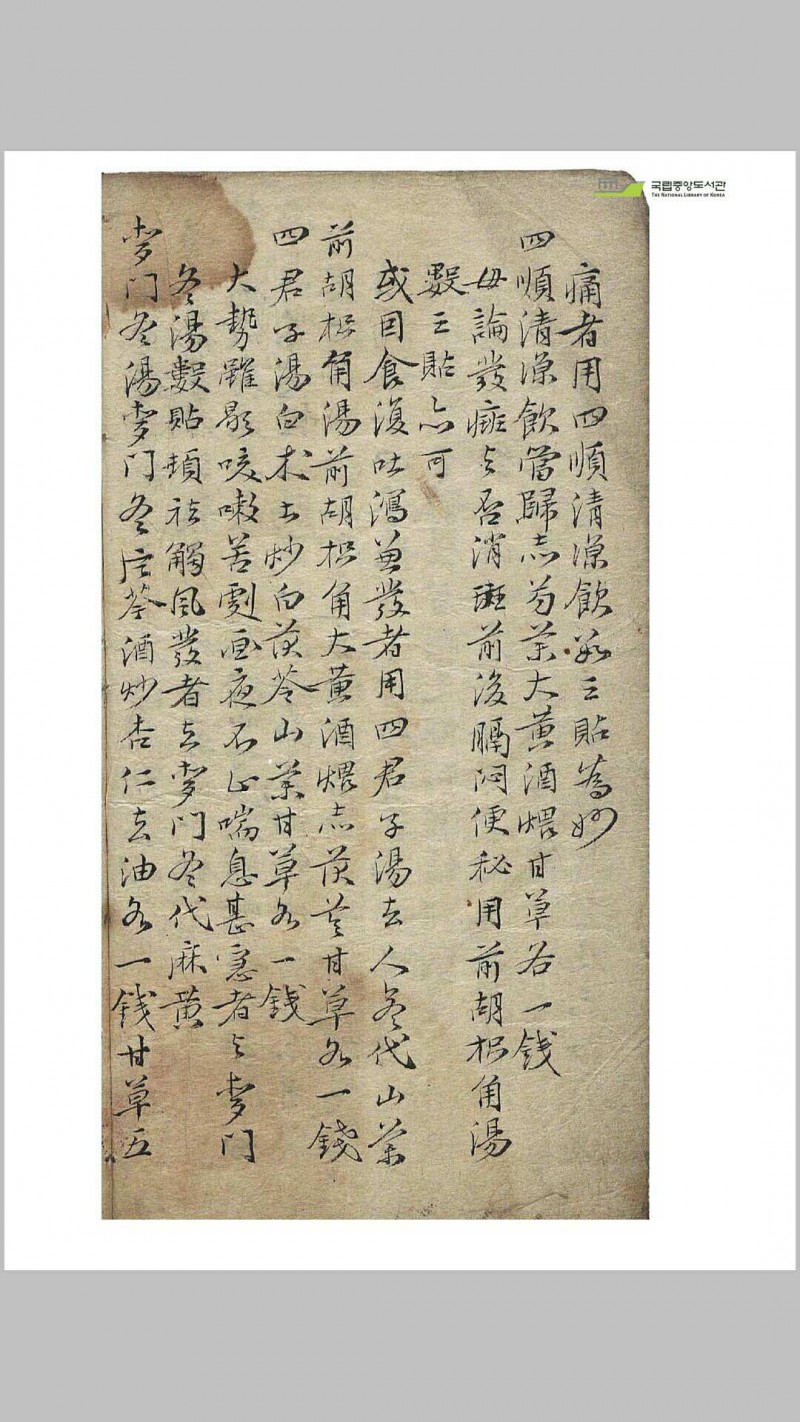 국립중앙도서관
THE NATIONAL LIBRARY OF KOREA
痛者用四順清凉飲數三貼為妙
四順清凉飲當歸赤芍藥大黄酒煨甘草各一錢
毋論發癍與否消斑前後膈悶便秘用前胡枳角湯
數三貼亦可
或因食復吐瀉兼發者用四君子湯去人參代山藥
前胡枳角湯前胡枳角大黄酒煨赤茯苓甘草各一錢
四君子湯白朮土炒白茯苓山藥甘草各一錢
大勢雖歇咳嗽苦劇晝夜不止喘息甚急者與麥門
冬湯數貼頓祛觸風發者去麥門冬代麻黄
麥門冬湯麥門冬黄芩酒炒杏仁去油各一錢甘草五